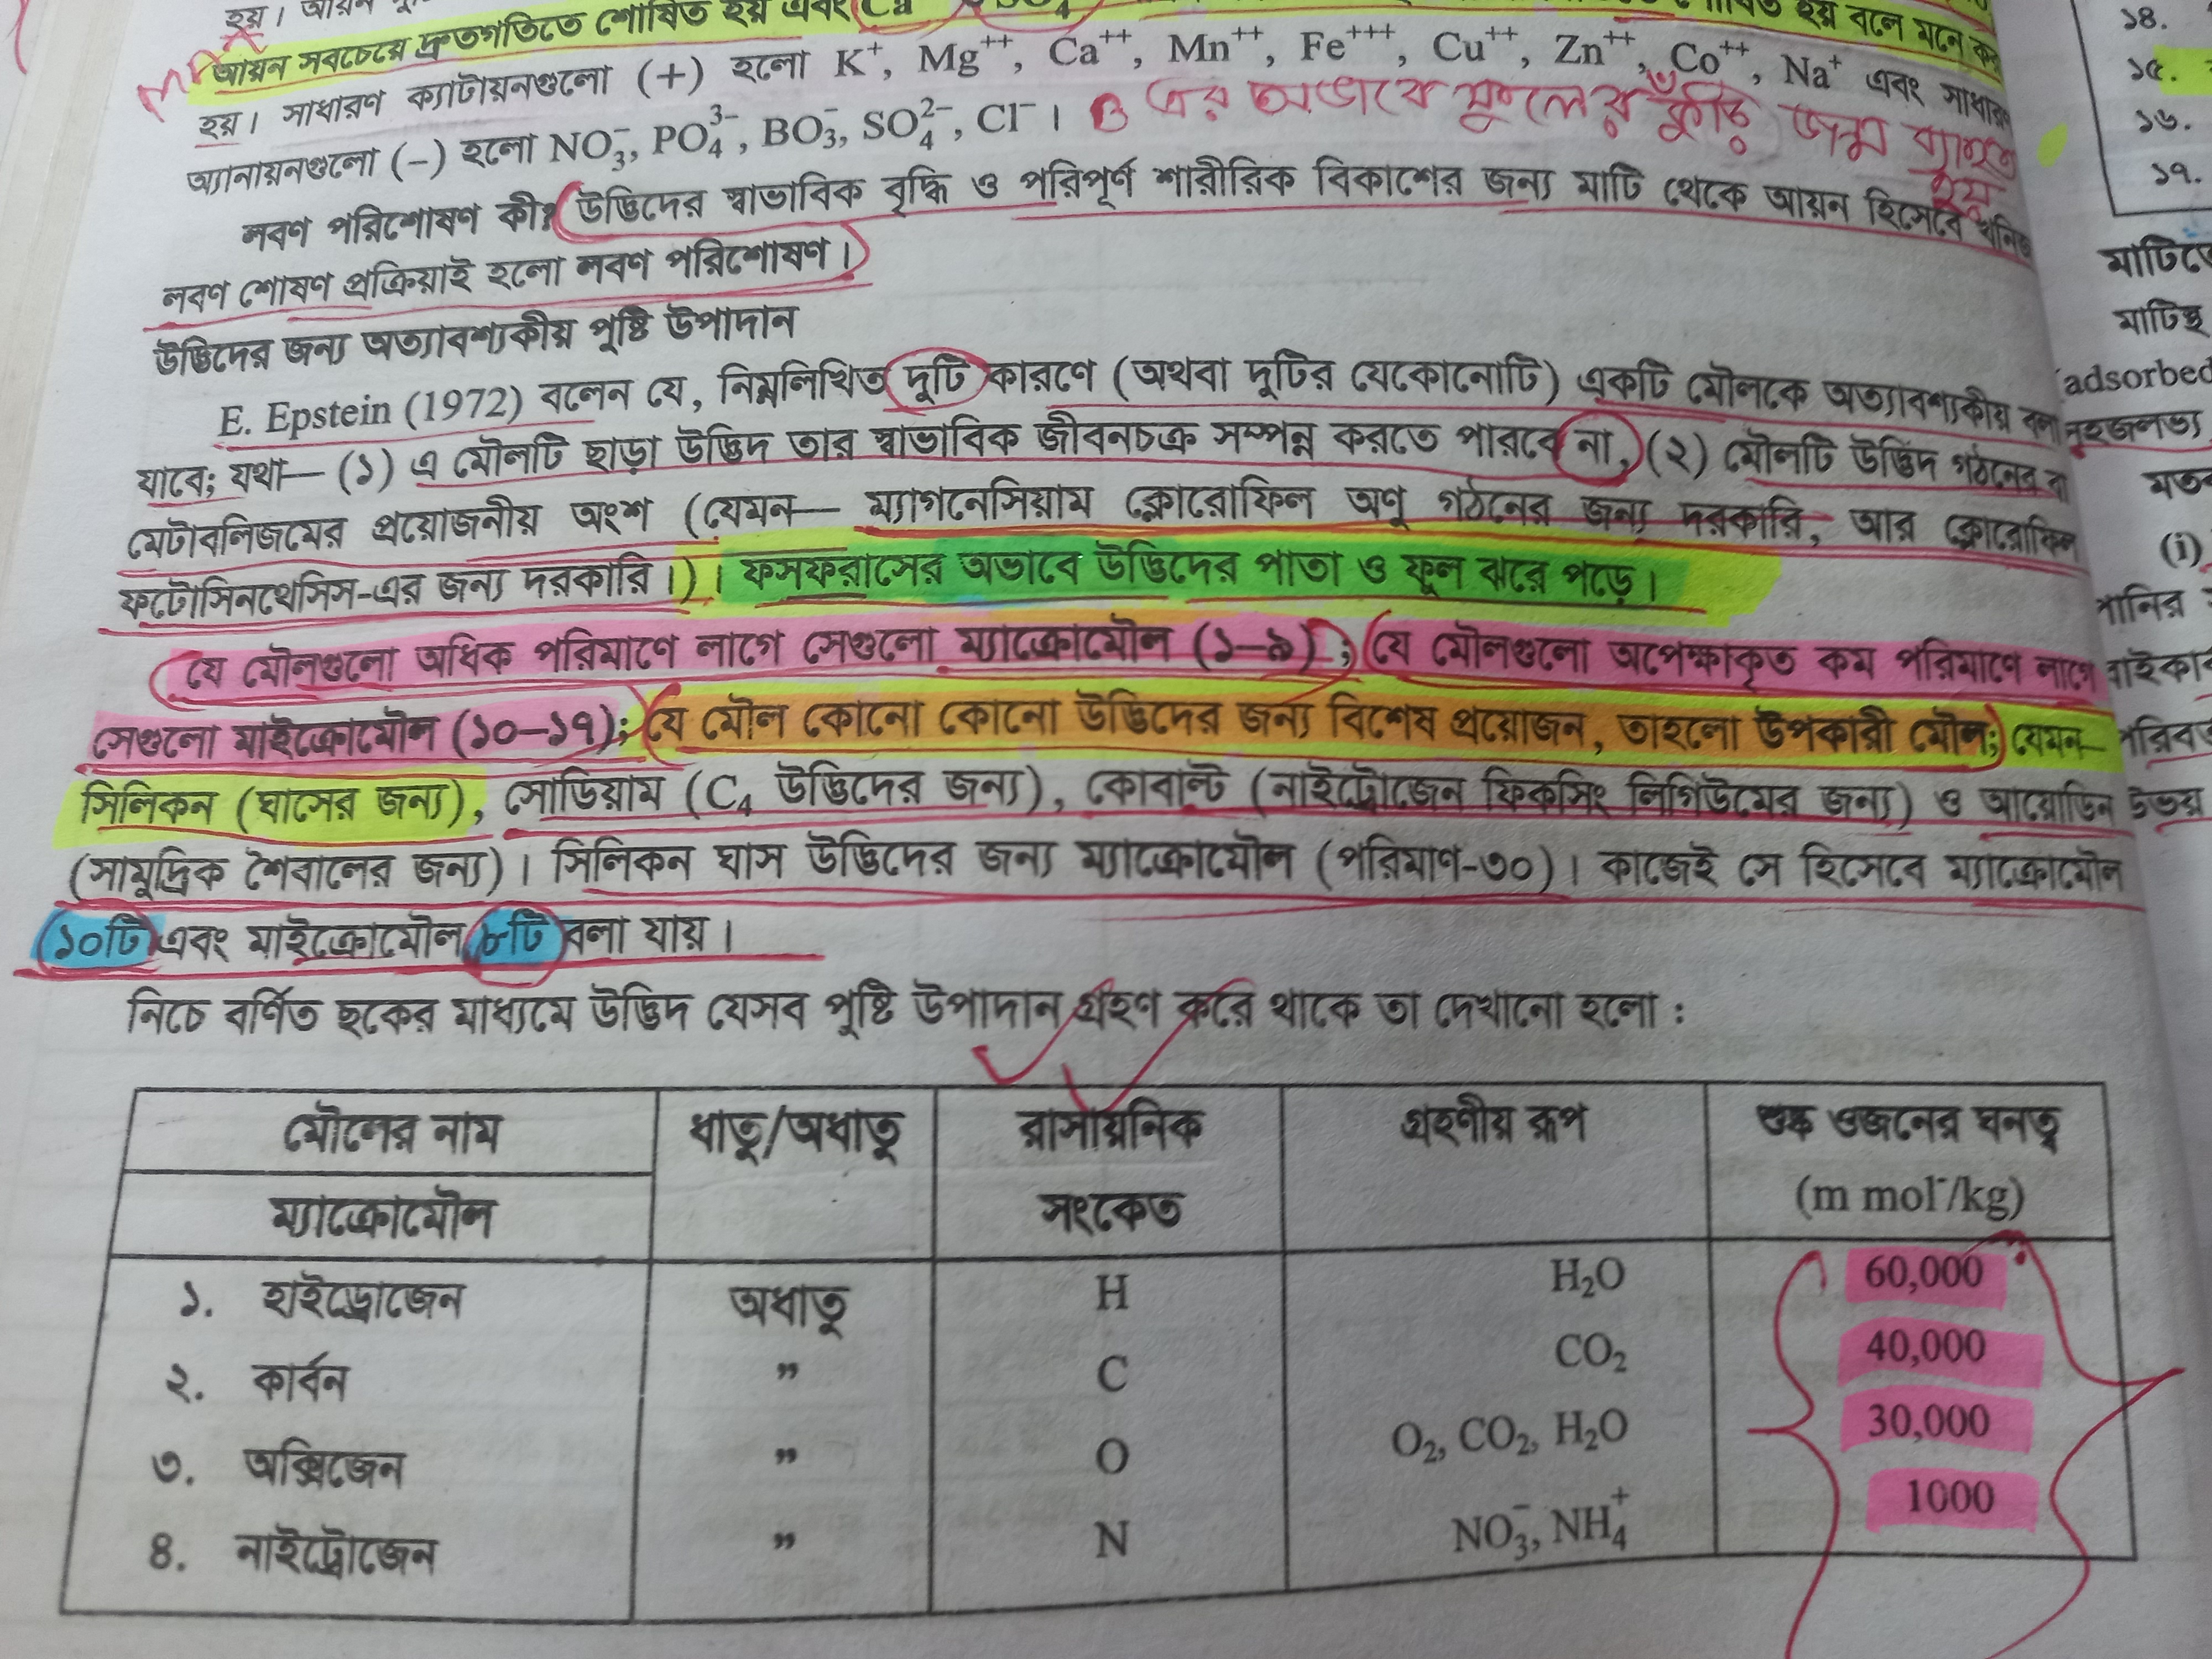 হয়। আয়ন
আয়ন সবচেয়ে দ্রুতগতিতে শোষিত হয় এবং Ca SO4 হয় বলে মনে করা
হয়। সাধারণ ক্যাটায়নগুলো (+) হলো K⁺, Mg⁺⁺, Ca⁺⁺, Mn⁺⁺, Fe⁺⁺⁺, Cu⁺⁺, Zn⁺⁺, Co⁺⁺, Na⁺ এবং সাধারণ
অ্যানায়নগুলো (–) হলো NO₃⁻, PO₄³⁻, BO₃⁻, SO₄²⁻, Cl⁻।
B এর অভাবে ফুলের কুঁড়ি জন্ম ব্যাহত হয়
লবণ পরিশোষণ কী? উদ্ভিদের স্বাভাবিক বৃদ্ধি ও পরিপূর্ণ শারীরিক বিকাশের জন্য মাটি থেকে আয়ন হিসেবে খনিজ
লবণ শোষণ প্রক্রিয়াই হলো লবণ পরিশোষণ।
উদ্ভিদের জন্য অত্যাবশ্যকীয় পুষ্টি উপাদান
E. Epstein (1972) বলেন যে, নিম্নলিখিত দুটি কারণে (অথবা দুটির যেকোনোটি) একটি মৌলকে অত্যাবশ্যকীয় বলা
যাবে; যথা— (১) এ মৌলটি ছাড়া উদ্ভিদ তার স্বাভাবিক জীবনচক্র সম্পন্ন করতে পারবে না, (২) মৌলটি উদ্ভিদ গঠনের বা
মেটাবলিজমের প্রয়োজনীয় অংশ (যেমন— ম্যাগনেসিয়াম ক্লোরোফিল অণু গঠনের জন্য দরকারি, আর ক্লোরোফিল
ফটোসিনথেসিস-এর জন্য দরকারি।)। ফসফরাসের অভাবে উদ্ভিদের পাতা ও ফুল ঝরে পড়ে।
যে মৌলগুলো অধিক পরিমাণে লাগে সেগুলো ম্যাক্রোমৌল (১–৯); যে মৌলগুলো অপেক্ষাকৃত কম পরিমাণে লাগে
সেগুলো মাইক্রোমৌল (১০–১৭); যে মৌল কোনো কোনো উদ্ভিদের জন্য বিশেষ প্রয়োজন, তাহলো উপকারী মৌল; যেমন—
সিলিকন (ঘাসের জন্য), সোডিয়াম (C₄ উদ্ভিদের জন্য), কোবাল্ট (নাইট্রোজেন ফিকসিং লিগিউমের জন্য) ও আয়োডিন
(সামুদ্রিক শৈবালের জন্য)। সিলিকন ঘাস উদ্ভিদের জন্য ম্যাক্রোমৌল (পরিমাণ-৩০)। কাজেই সে হিসেবে ম্যাক্রোমৌল
১০টি এবং মাইক্রোমৌল ৮টি বলা যায়।
নিচে বর্ণিত ছকের মাধ্যমে উদ্ভিদ যেসব পুষ্টি উপাদান গ্রহণ করে থাকে তা দেখানো হলো :
মৌলের নাম ধাতু/অধাতু রাসায়নিক গ্রহণীয় রূপ শুষ্ক ওজনের ঘনত্ব
ম্যাক্রোমৌল সংকেত (m mol⁻/kg)
১. হাইড্রোজেন অধাতু H H₂O 60,000
২. কার্বন ” C CO₂ 40,000
৩. অক্সিজেন ” O O₂, CO₂, H₂O 30,000
৪. নাইট্রোজেন ” N NO₃⁻, NH₄⁺ 1000
১৪.
১৫.
১৬.
১৭.
মাটিস্থ
adsorbed
সহজলভ্য
(i)
পানির
উভয়